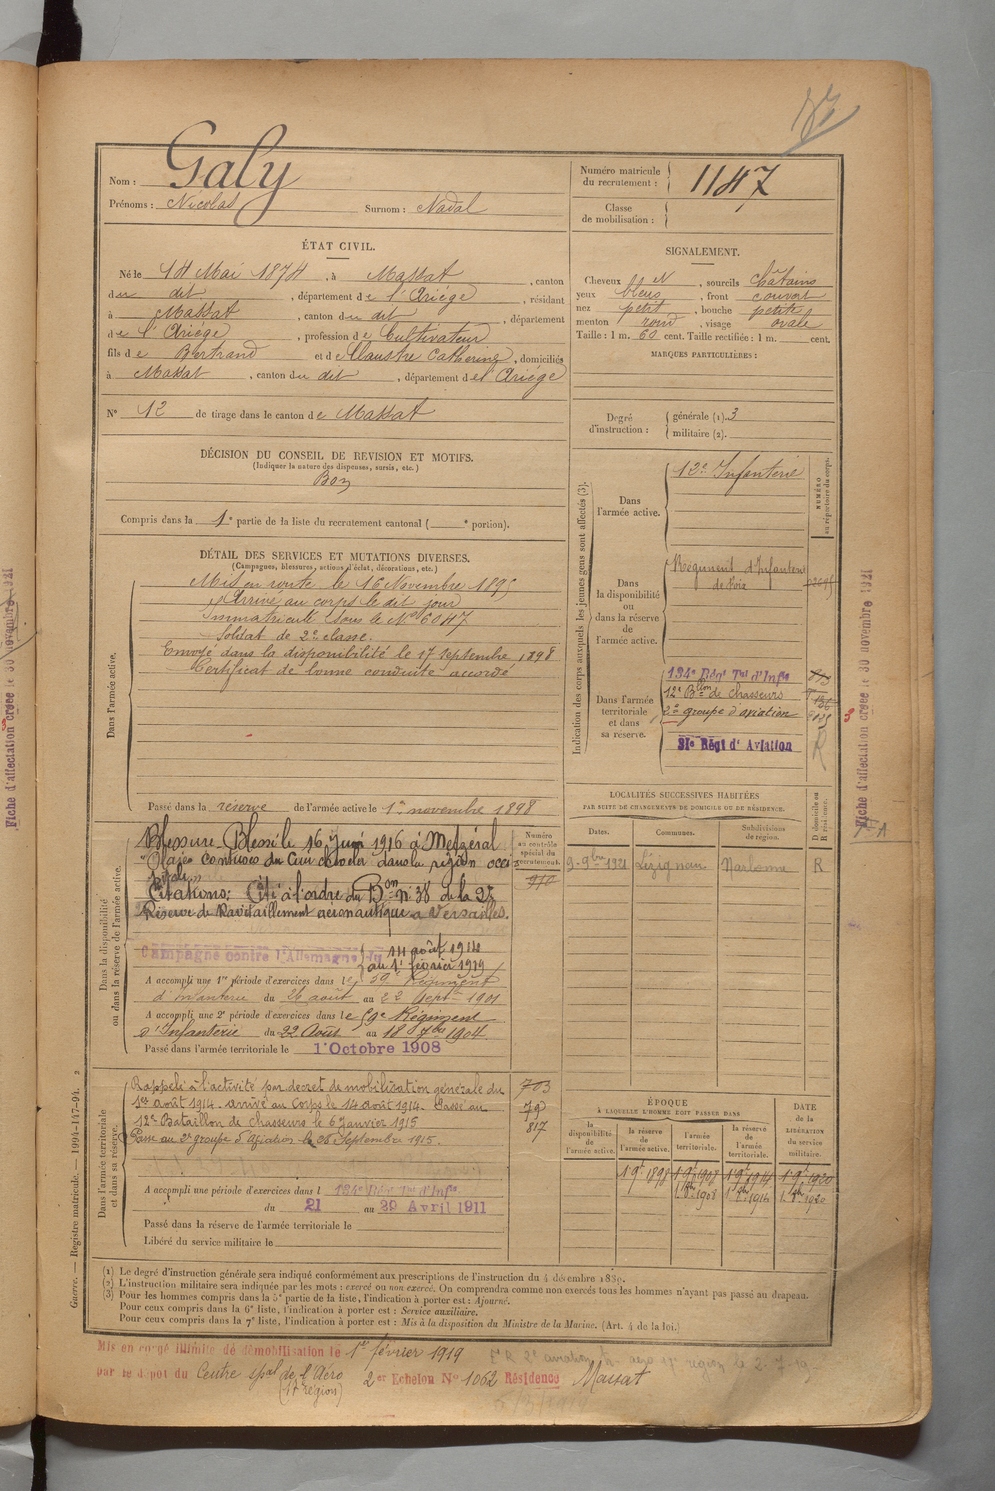 Galy
Nom :
Prénoms : Nicolas Surnom : Nadal
ÉTAT CIVIL.
Né le 14 Mai 1874, à Massat, canton
du dit, département de l'Ariège, résidant
à Massat, canton du dit, département
de l'Ariège, profession de Cultivateur
fils de Bertrand et de Claustre Catherine, domiciliés
à Massat, canton du dit, département de l'Ariège
N° 12 de tirage dans le canton de Massat
DÉCISION DU CONSEIL DE REVISION ET MOTIFS.
(Indiquer la nature des dispenses, sursis, etc.)
Bon
Compris dans la 1e partie de la liste du recrutement cantonal ( e portion).
DÉTAIL DES SERVICES ET MUTATIONS DIVERSES.
(Campagnes, blessures, actions d'éclat, décorations, etc.)
Dans l'armée active.
Mis en route le 16 Novembre 1895
Arrivé au corps le dit jour
Immatriculé sous le N° 6047
Soldat de 2e classe.
Envoyé dans la disponibilité le 17 septembre 1898
Certificat de bonne conduite accordé
Passé dans la réserve de l'armée active le 1er novembre 1898
Dans la disponibilité
ou dans la réserve de l'armée active.
Blessure. Blessé le 16 juin 1916 à Metzéral
"Plaies contuses du cuir chevelu dans la région occi
pitale
Citations: Cité à l'ordre du Bon n° 38 de la 2e
Réserve de Ravitaillement aéronautique à Versailles.
Campagne contre l'Allemagne du 14 août 1914
au 1er février 1919
A accompli une 1re période d'exercices dans le 59e Régiment
d'Infanterie du 26 août au 22 Sept 1901
A accompli une 2e période d'exercices dans le 59e Régiment
d'Infanterie du 22 Août au 18 7bre 1904.
Passé dans l'armée territoriale le 1er Octobre 1908
Dans l'armée territoriale
et dans sa réserve.
Rappelé à l'activité par décret de mobilisation générale du
1er août 1914. arrivé au Corps le 14 août 1914. Passé au
12e Bataillon de chasseurs le 6 janvier 1915
Passé au 2e groupe d'Aviation le 26 Septembre 1915.
A accompli une période d'exercices dans l 134e Régt Tal d'Infie
du 21 au 29 Avril 1911
Passé dans la réserve de l'armée territoriale le
Libéré du service militaire le
Numéro
au contrôle
spécial du
recrutement.
910
703
79
817
Numéro matricule
du recrutement : 1147
Classe
de mobilisation :
SIGNALEMENT.
Cheveux , sourcils châtains
yeux bleus, front couvert
nez petit, bouche petite
menton rond, visage ovale
Taille : 1 m. 60 cent. Taille rectifiée : 1 m. cent.
MARQUES PARTICULIÈRES :
Degré
d'instruction :
générale (1). 3
militaire (2).
Indication des corps auxquels les jeunes gens sont affectés (3).
NUMÉRO
au répertoire du corps.
Dans
l'armée active.
12e Infanterie
Dans
la disponibilité
ou
dans la réserve
de
l'armée active.
Régiment d'Infanterie
de Foix
Dans l'armée
territoriale
et dans
sa réserve.
134e Régt Tal d'Infie
12e Blon de chasseurs
2e groupe d'aviation
31e Régt d'Aviation
R
LOCALITÉS SUCCESSIVES HABITÉES
PAR SUITE DE CHANGEMENTS DE DOMICILE OU DE RÉSIDENCE.
Dates. Communes. Subdivisions
de région.
D domicile ou
R résidence.
9-9bre 1921 Lézignan Narbonne R
ÉPOQUE
À LAQUELLE L'HOMME DOIT PASSER DANS
DATE
de la
LIBÉRATION
du service
militaire.
la
disponibilité
de l'armée active.
la réserve
de
l'armée active.
l'armée
territoriale.
la réserve
de l'armée
territoriale.
1 9bre 1898 1 9bre 1908 1 9bre 1914 1 9bre 1920
1 8bre 1908 1 8bre 1914 1 8bre 1920
(1) Le degré d'instruction générale sera indiqué conformément aux prescriptions de l'instruction du 4 décembre 1889.
(2) L'instruction militaire sera indiquée par les mots : exercé ou non exercé. On comprendra comme non exercés tous les hommes n'ayant pas passé au drapeau.
(3) Pour les hommes compris dans la 5e partie de la liste, l'indication à porter est : Ajourné.
Pour ceux compris dans la 6e liste, l'indication à porter est : Service auxiliaire.
Pour ceux compris dans la 7e liste, l'indication à porter est : Mis à la disposition du Ministre de la Marine. (Art. 4 de la loi.)
Mis en congé illimité de démobilisation le 1er février 1919
par le dépôt du Centre spal de l'Aéro 2e Echelon N° 1062 Résidence Massat
(17e région)
Guerre. — Registre matricule. — 1994-147-94. 2
Fiche d'affectation créée le 30 novembre 1921
Fiche d'affectation créée le 30 novembre 1921